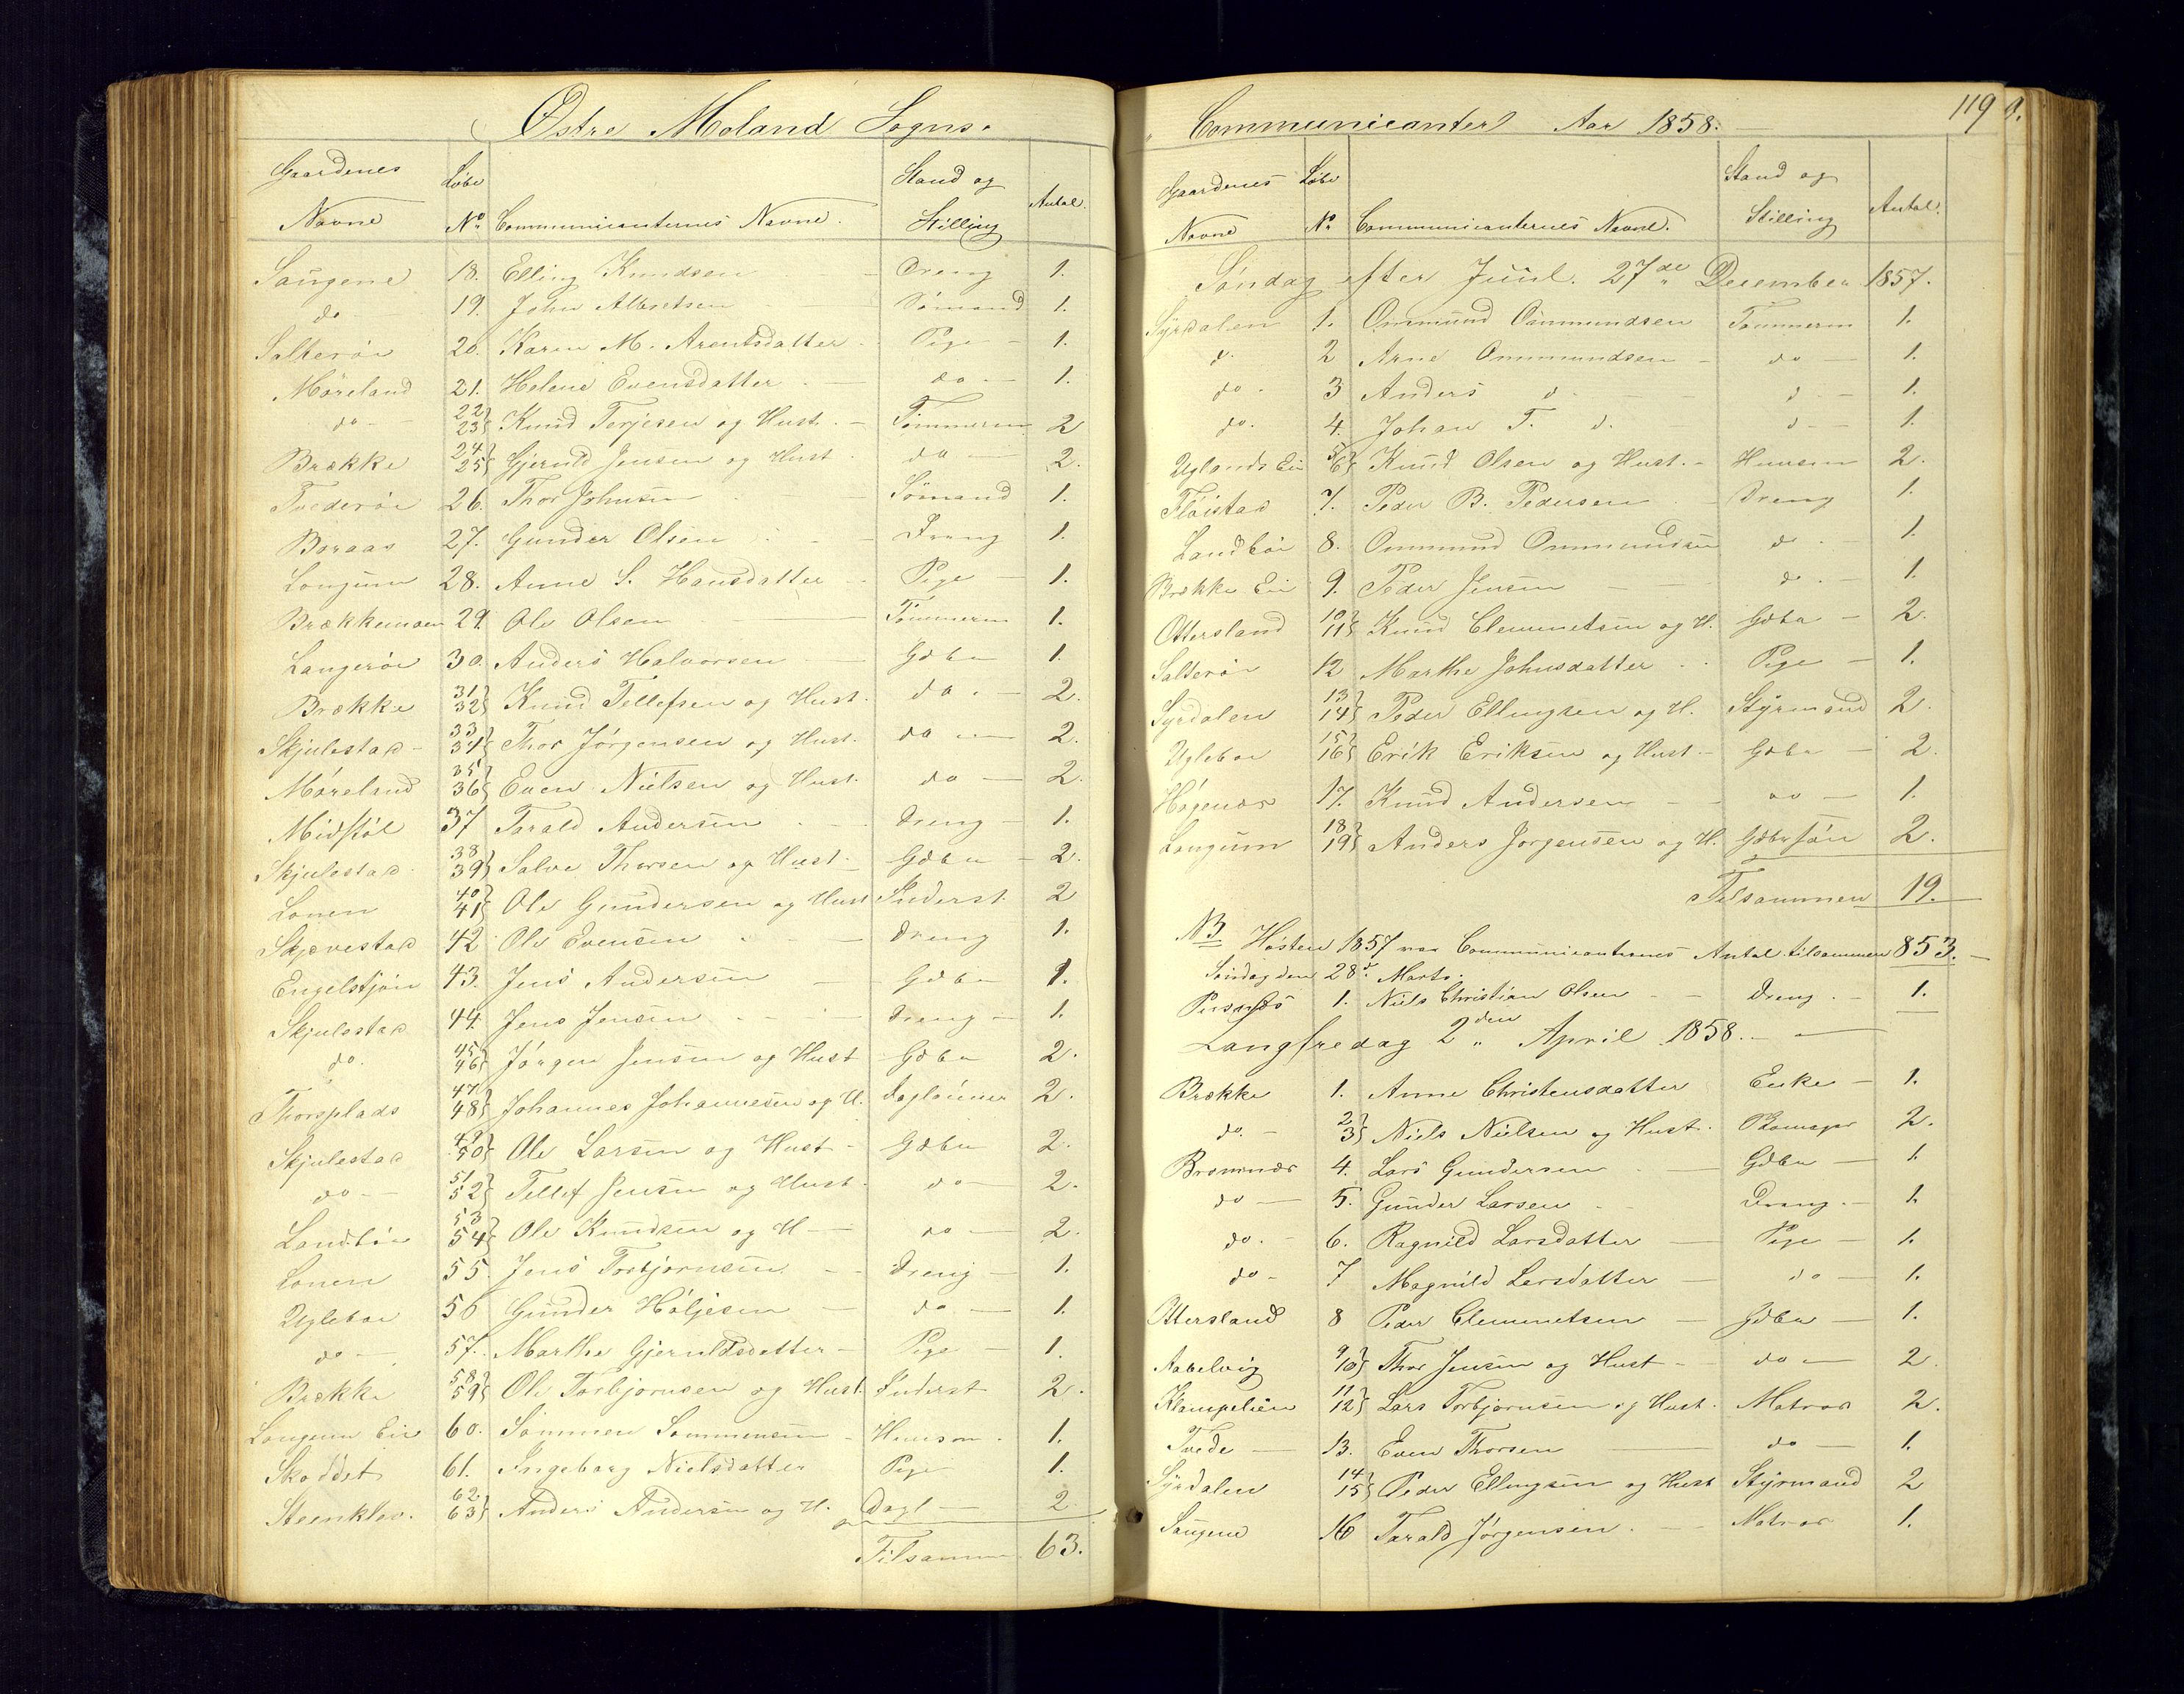 Østre Moland Sogns.
Gaardenes Navne Løbe No Communicanternes Navne. Stand og Stilling Antal.
Saugene 18. Elling Knudsen Dreng 1.
do 19. John Albretsen Sömand 1.
Salterøe 20. Karen M. Arentsdatter Pige 1.
Möreland 21. Helene Evensdatter do 1.
do 22 23 Knud Terjesen og Hust. Tömmerm 2
Brække 24 25 Gjeruld Jensen og Hust do 2.
Tvederöe 26. Thor Johnsen Sömand 1.
Boraas 27. Gunder Olsen Dreng 1.
Longum 28. Anne S. Hansdatter Pige 1.
Brækkemoen 29. Ole Olsen Tömmerm 1.
Langeröe 30. Anders Halvorsen Gdbr 1.
Brække 31 32 Knud Tellefsen og Hust. do 2.
Skjulestad 33 34 Thor Jörgensen og Hust. do 2.
Mörelund 35 36 Even Nielsen og Hust. do 2.
Midstöl 37 Tarald Andersen Dreng 1.
Skjulestad 38 39 Salve Thorsen og Hust. Gdbr 2.
Lonen 40 41 Ole Gundersen og Hust Inderst 2
Skjævestad 42 Ole Evensen Dreng 1.
Engelstjön 43. Jens Andersen Gdbr 1.
Skjulestad 44. Jens Jensen Dreng 1.
do. 45 46 Jörgen Jensen og Hust Gdbr 2.
Thorsplads 48 Johannes Johannesen og H. Daglönner 2.
Skjulestad 49 50 Ole Larsen og Hust Gdbr 2.
do 51 52 Tellef Jensen og Hust. do 2.
Landböe 53 54 Ole Knudsen og H do 2.
Lonen 55. Jens Torbjörnsen Dreng 1.
Ugleboe 56 Gunder Höljesen do 1.
do 57. Marthe Gjeruldsdatter Pige 1.
Brække 58 59 Ole Torbjørnsen og Hust. Inderst 2.
Longum Eie 60. Sömmen Sommensen Huusm. 1.
Skoddet 61. Ingeborg Nielsdatter Pige 1.
Steenklev. 62 63 Anders Andersen og H. Dagl 2
Tilsammen 63.
Communicanter Aar 1858. 119
Gaardenes Navne Løbe No Communicanternes Navne. Stand og Stilling Antal.
Söndag efter Juul. 27de December 1857.
Syrdalen 1. Ommund Ommundsen Tömmerm 1.
d. 2 Arne Ommundsen do 1.
do. 3 Anders d d 1.
do. 4. Johan T. d. d 1.
Uglands Eie 5 6 Knud Olsen og Hust. Huusm 2.
Flöistad 7. Peder B. Pedersen Dreng 1.
Landböe 8. Ommund Ommundsen do 1.
Brække Eie 9. Peder Jensen do 1.
Ottersland 10 11 Knud Clemmetsen og H. Gdbr 2.
Salteröe 12 Marthe Johnsdatter Pige 1.
Syrdalen 13 14 Peder Ellingsen og H. Styrmand 2.
Ugleboe 15 16 Erik Eriksen og Hust. Gdbr 2.
Högenæs 17. Knud Andersen do 1.
Longum 18 19 Anders Jorgensen og H. Gdbr Sön 2.
Tilsammen 19.
NB Hösten 1857 var Communicanternes Antal tilsammen 853.
Söndag den 28de Marts.
1. Niels Christian Olsen Dreng 1.
Langfredag 2den April 1858.
Brække 1. Anne Christensdatter Enke 1.
do. 2 3 Niels Nielsen og Hust. 2.
Brommæs 4. Lars Gundersen Gdbr 1.
do 5. Gunder Larsen Dreng 1.
do. 6. Ragnild Larsdatter Pige 1.
do 7 Magnild Larsdatter do 1.
Ottersland 8 Peder Clemmetsen Gdbr 1.
Aarelvig 9 10 Thor Jensen og Hust do 2
Klampelien 11 12 Lars Torbjørnsen og Hust. Matros 2.
Tvede 13. Even Thorsen do 1.
Syrdalen 14 15 Peder Ellingsen og Hust Styrmand 2
Saugene 16 Tarald Jörgensen. Matros 1.